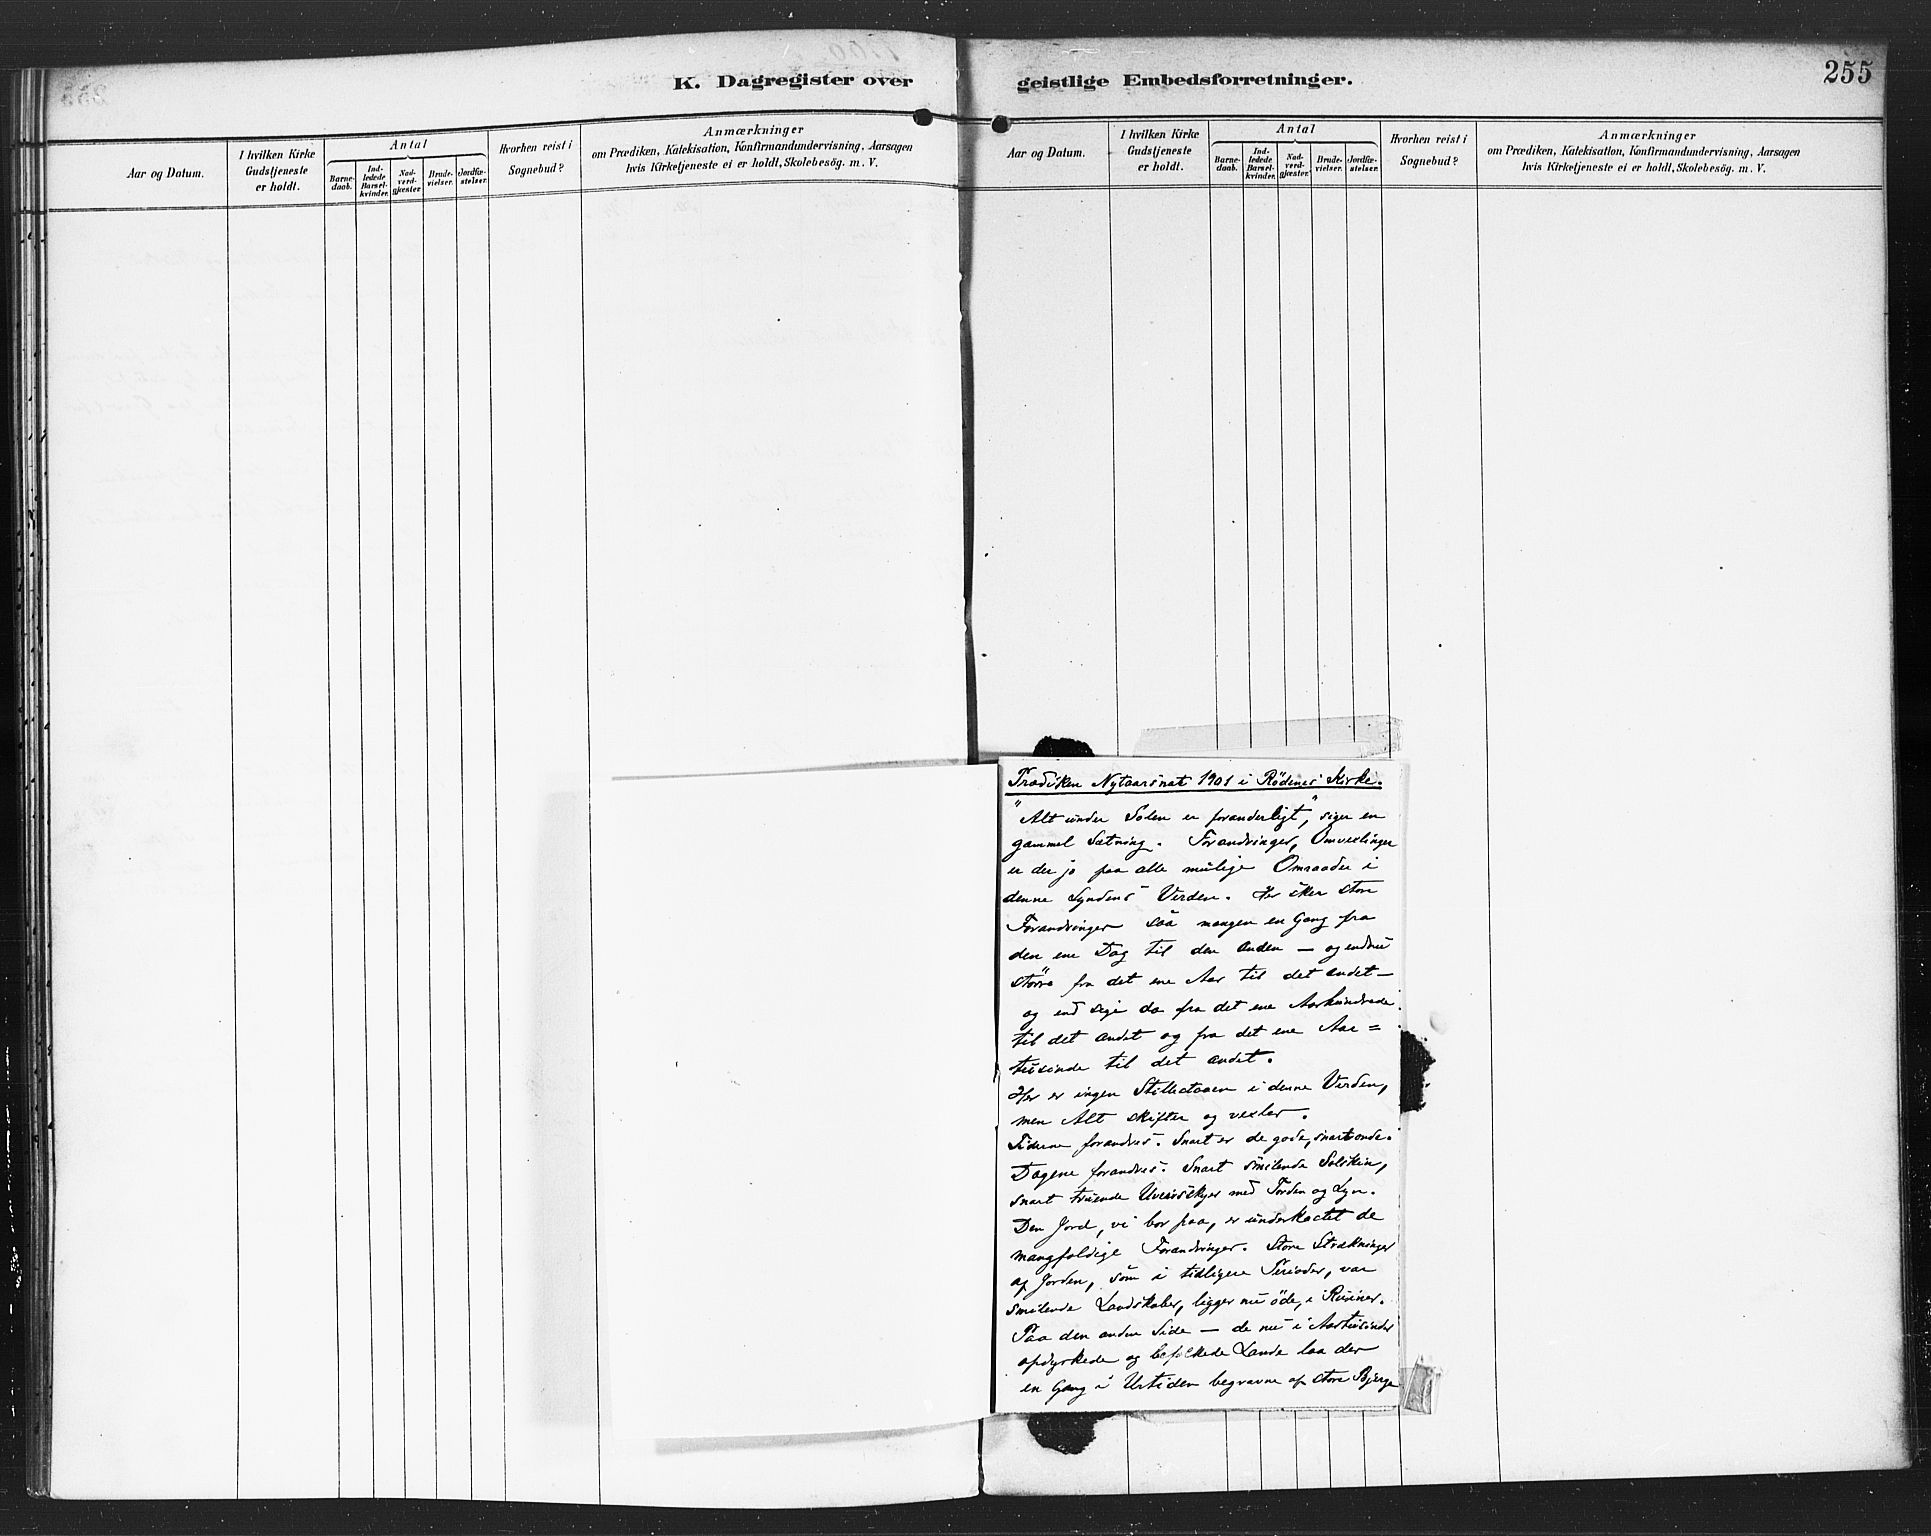 K. Dagregister over
Aar og Datum.
I hvilken Kirke
Gudstjeneste
er holdt.
Antal
Barne-
daab.
Ind-
ledede
Barsel-
kvinder.
Nad-
verd-
gjæster.
Brude-
vielser.
Jordfæ-
stelser.
Hvorhen reist i
Sognebud?
Anmærkninger
om Prædiken, Katekisation, Konfirmandundervisning, Aarsagen
hvis Kirketjeneste ei er holdt, Skolebesög. m. V.
geistlige Embedsforretninger.
255
Aar og Datum.
I hvilken Kirke
Gudstjeneste
er holdt.
Antal
Barne-
daab.
Ind-
ledede
Barsel-
kvinder.
Nad-
verd-
gjæster.
Brude-
vielser.
Jordfæ-
stelser.
Hvorhen reist i
Sognebud?
Anmærkninger
om Prædiken, Katekisation, Konfirmandundervisning, Aarsagen
hvis Kirketjeneste ei er holdt, Skolebesög. m. V.
Prædiken Nytaarsnat 1901 i Rödenes Kirke.
"Alt under Solen er foranderligt", siger en
gammel Sætning. Forandringer, Omvexlinger
er der jo paa alle mulige Omraader i
denne Syndens Verden. Her sker store
Forandringer saa mangen en Gang fra
den ene Dag til den anden — og endnu
større fra det ene Aar til det andet —
og end sige da fra det ene Aarhundrede
til det andet og fra det ene Aar=
tusinde til det andet.
Her er ingen Stillestaaen i denne Verden,
men Alt skifter og vexler.
Tiderne forandres. Snart er de gode, snart onde.
Dagene forandres. Snart smilende Solskin,
snart truende Uveirsskyer med Torden og Lyn.
Den Jord, vi bor paa, er underkastet de
mangfoldige Forandringer. Store Strækninger
af Jorden, som i tidligere Perioder, var
smilende Landskaber, ligger nu öde, i Ruiner.
Paa den anden Side — de nu i Aartusinder
opdyrkede og befolkede Lande laa der
en Gang i Urtiden begravne af store Bjerge